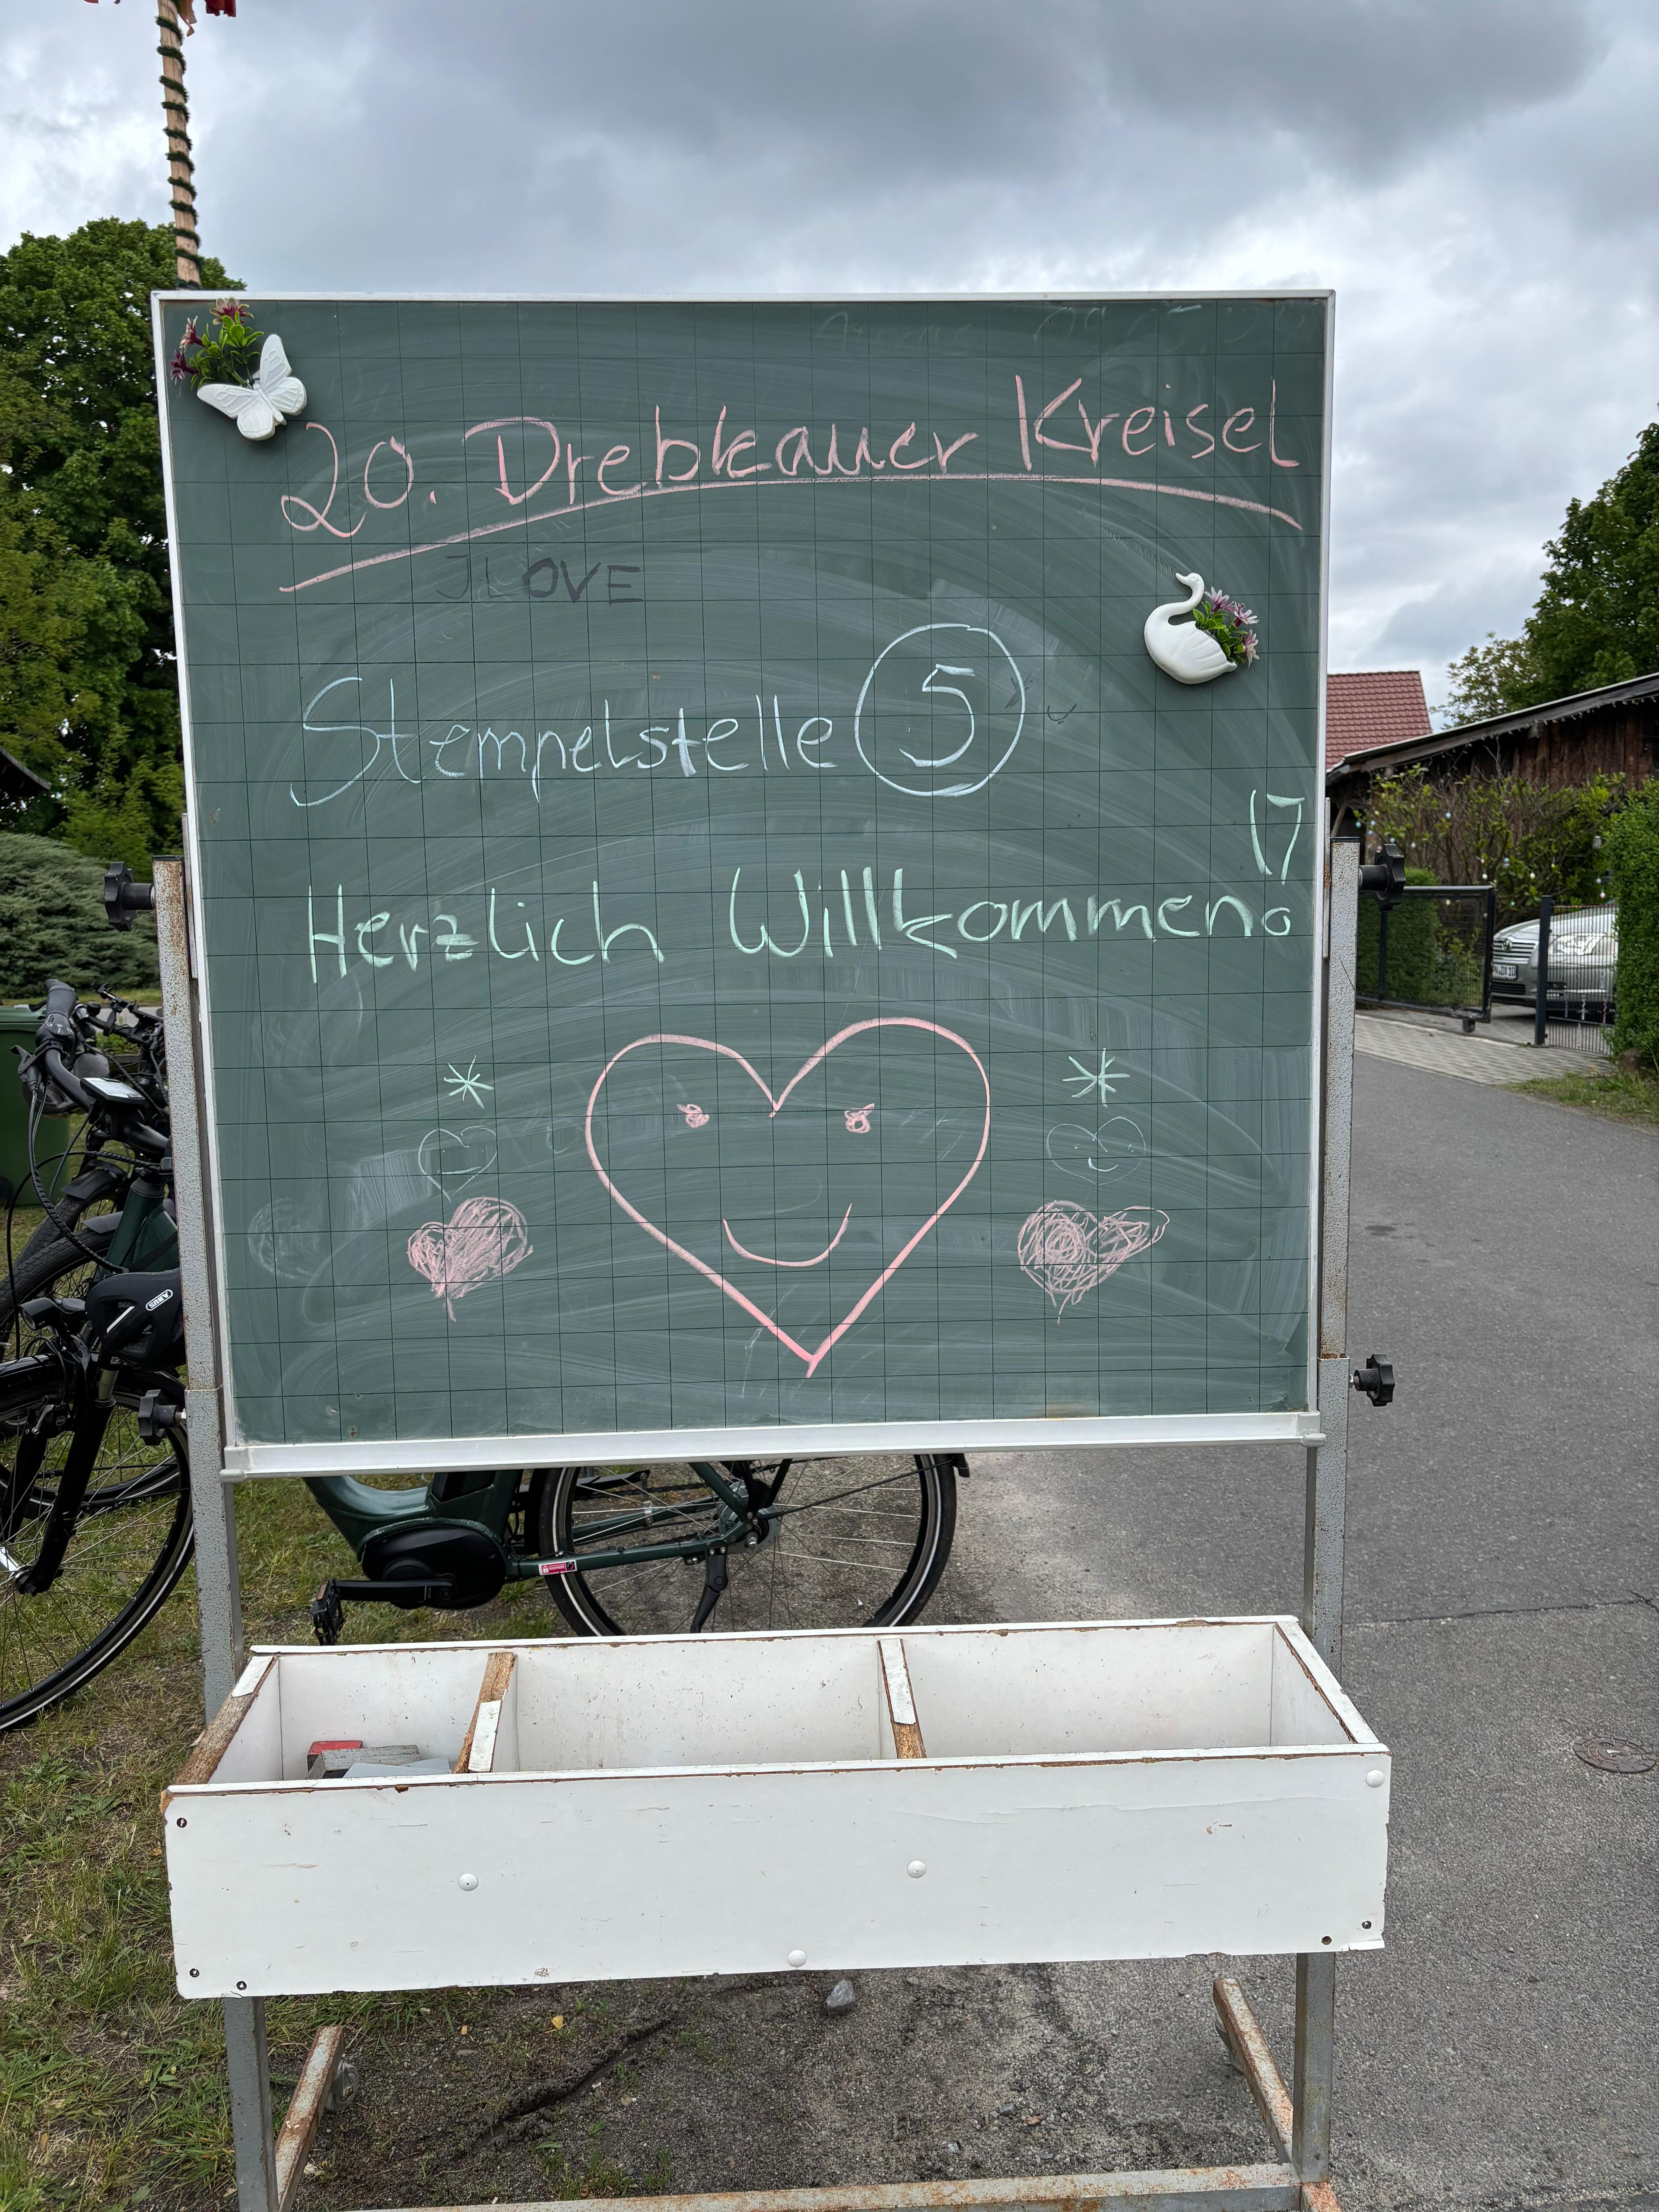 20. Drebkauer Kreisel
LOVE
Stempelstelle 5
17
Herzlich Willkommen
ABUS